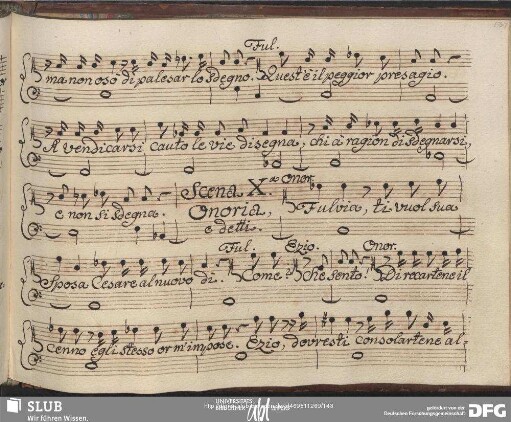 Ful.
ma non oso di palesar lo sdegno. Quest'è il peggior presagio.
A vendicarsi cauto le vie disegna, chi à ragion di sdegnarsi,
e non si sdegna. Scena X.a Onor. Fulvia, ti vuol sua
Onoria,
e detti.
Ful. Ezio. Onor.
Sposa Cesare al nuovo di.. Come? che sento! Di recartene il
cenno egli stesso or m'impose. Ezio, dovresti consolartene al-
SLUB
Wir führen Wissen.
gefördert von der
Deutschen Forschungsgemeinschaft
DFG